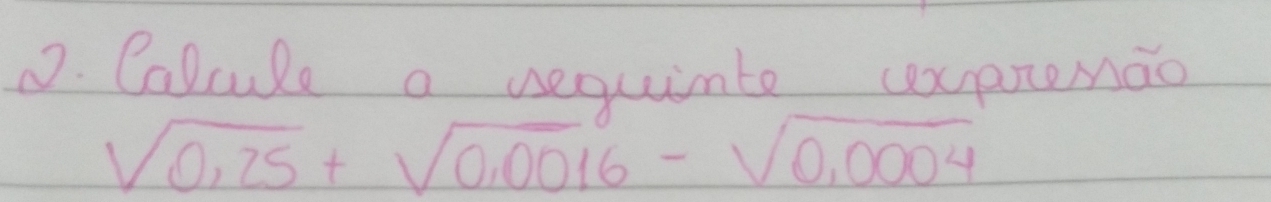 2. Calcule a seguinte expressão
√0,25 + √0,0016 - √0,0004